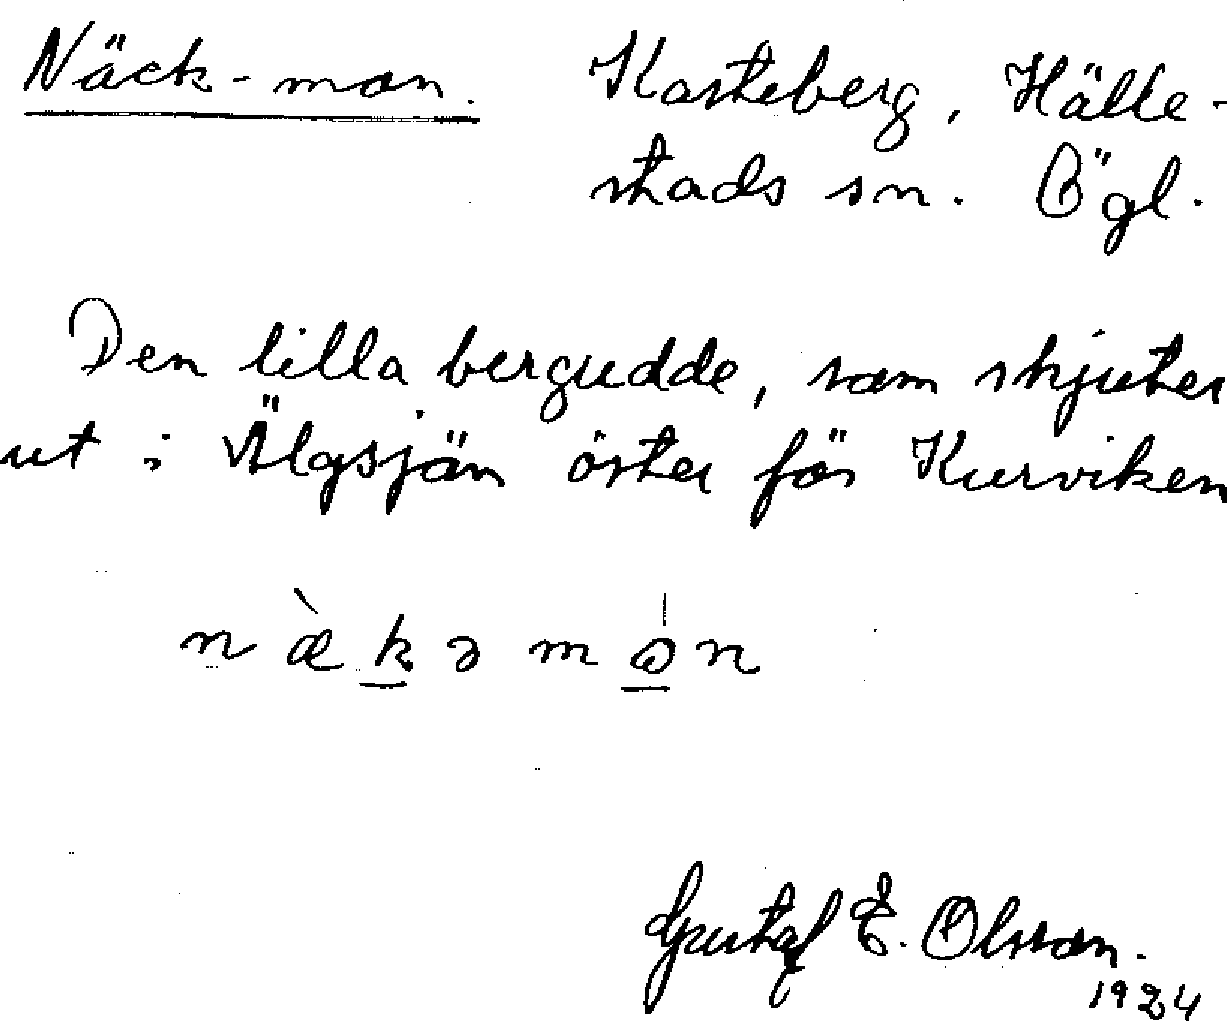 Näck-mon. Kasteberg, Hälle-
stads sn. Ögl.
Den lilla bergudde, som skjuter
ut i Älgsjön öster för Kurviken
n æ̀ k ə m ɔ́ n
Gustaf E. Olsson.
1924